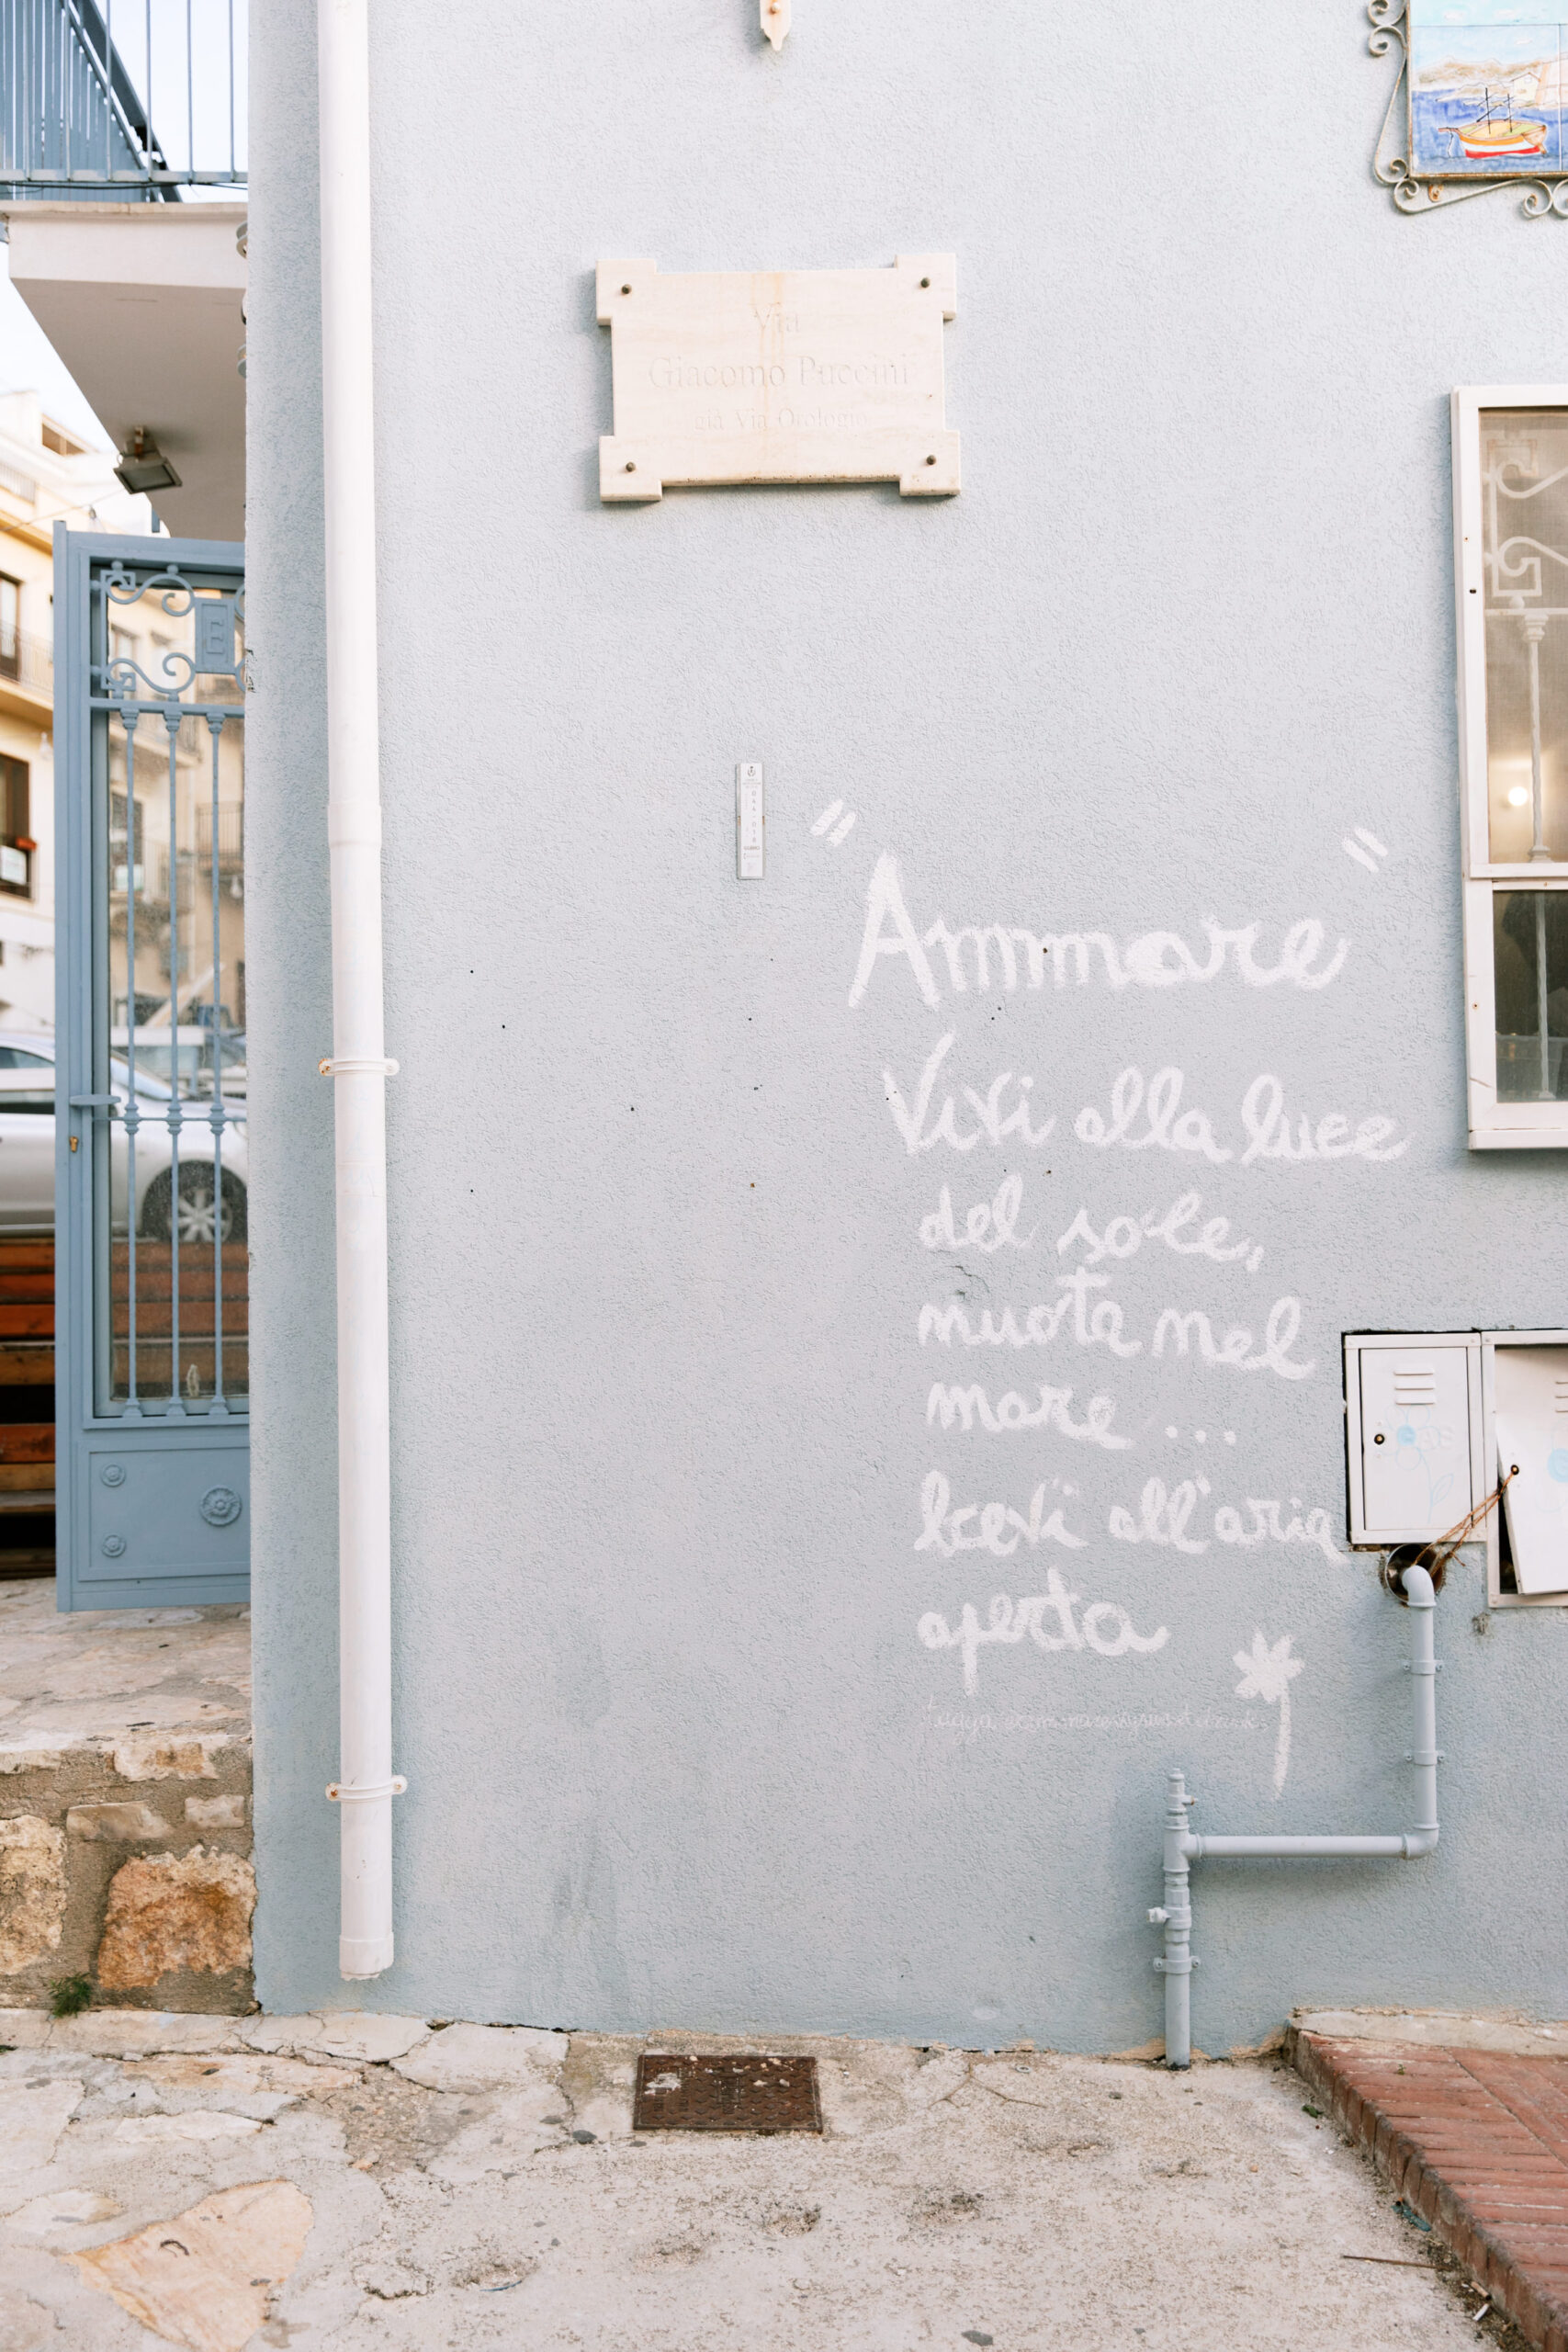 Via
Giacomo Puccini
già Via Orologio
E
"Ammare"
Vivi alla luce
del sole,
nuota nel
mare ...
bevi all'aria
aperta